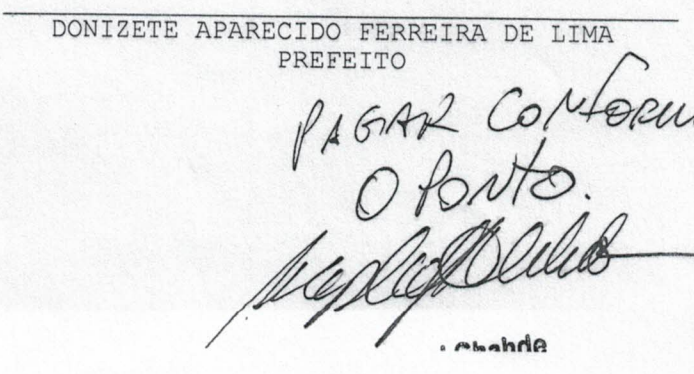 DONIZETE APARECIDO FERREIRA DE LIMA
PREFEITO
PAGAR CONFORM
O PONTO.